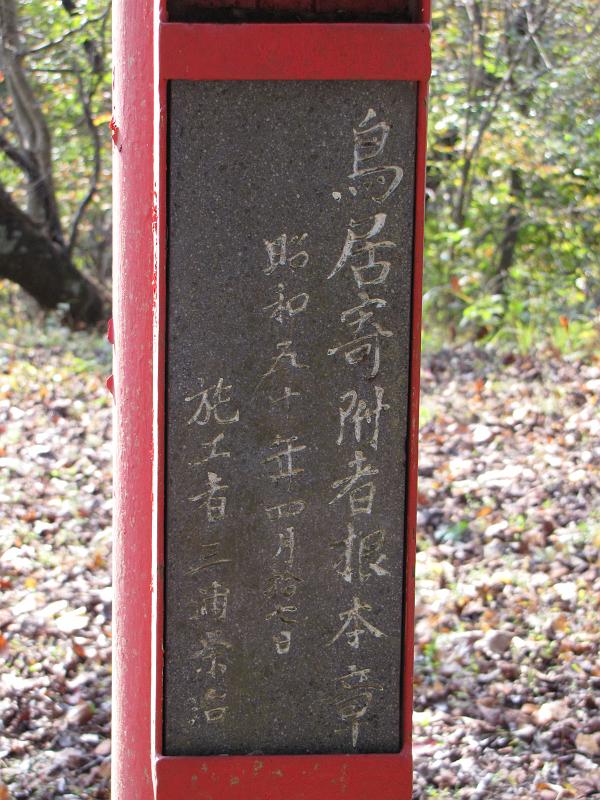 鳥居寄附者根本章
昭和五十年四月拾七日
施工者三浦栄治